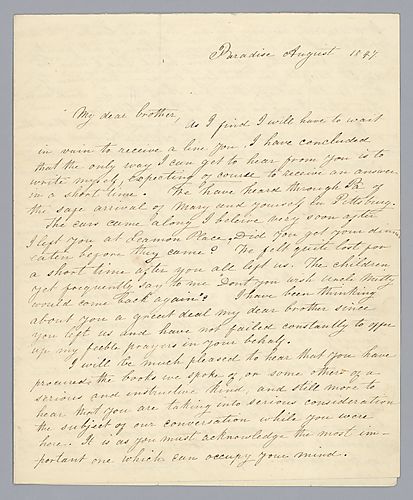 Paradise August 1847
My dear brother,
As I find I will have to wait
in vain to receive a line you, I have concluded
that the only way I can get to hear from you is to
write myself, expecting of course to receive an answer
in a short time. We have heard through Pa of
the safe arrival of Mary and yourself in Pittsburg.
The cars came along I beleive very soon after
I left you at Leamon Place, Did you get your dinner
eaten before they came? We felt quite lost for
a short time after you all left us. The children
yet frequently say to me dont you wish Uncle
would come back again? I have been thinking
about you a great deal my dear brother since
you left us and have not failed constantly to offer
up my feeble prayers in your behalf.
I will be much pleased to hear that you have
procured the books we spoke of or some others of a
serious and instructive kind, and still more to
hear that you are taking into serious consideration
the subject of our conversation while you were
here. It is as you must acknowledge the most im-
portant one which can occupy your mind.